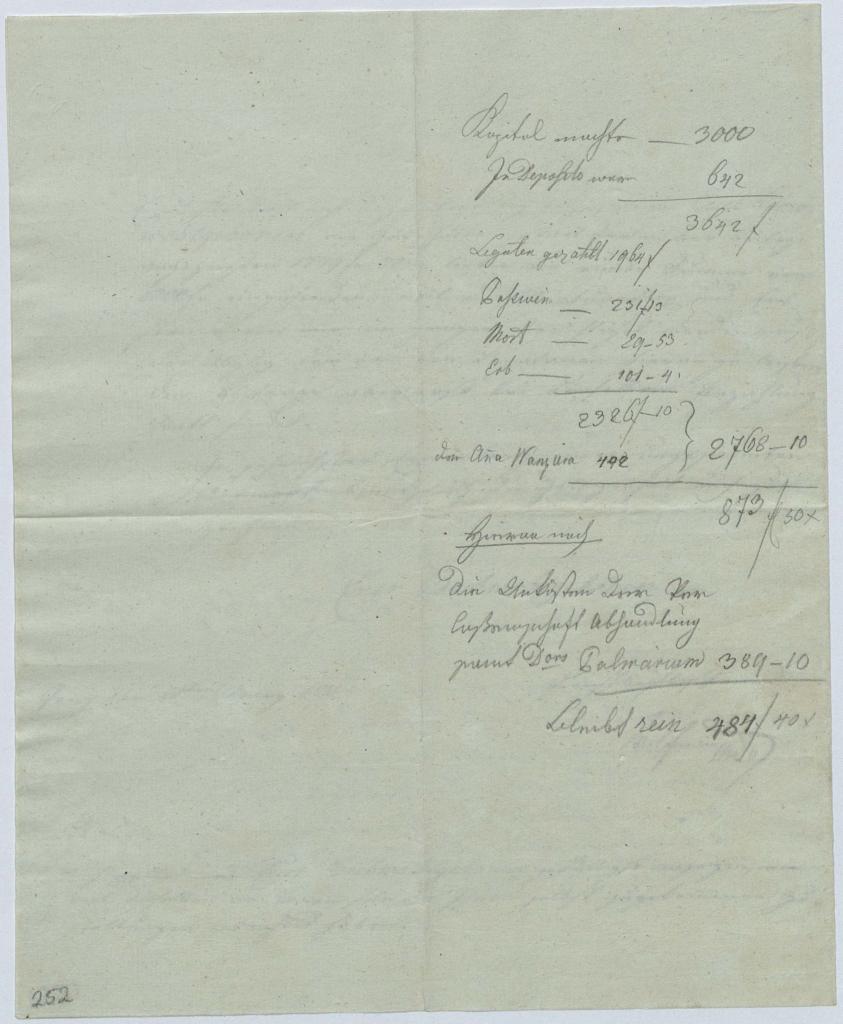 Kapital machte — 3000
In Deposito war 642
3642 f
Legaten gezahlt 1964 f
— 231/13
Mort — 29-53
Erb — 101-4
2326/-10
der Aña Wanzura 442 } 2768-10
873 f 50 x
Hievon noch
Die Unkosten der Ver
laßenschaft Abhandlung
samt Palmarium 389-10
bleibt rein 484/40 x
252